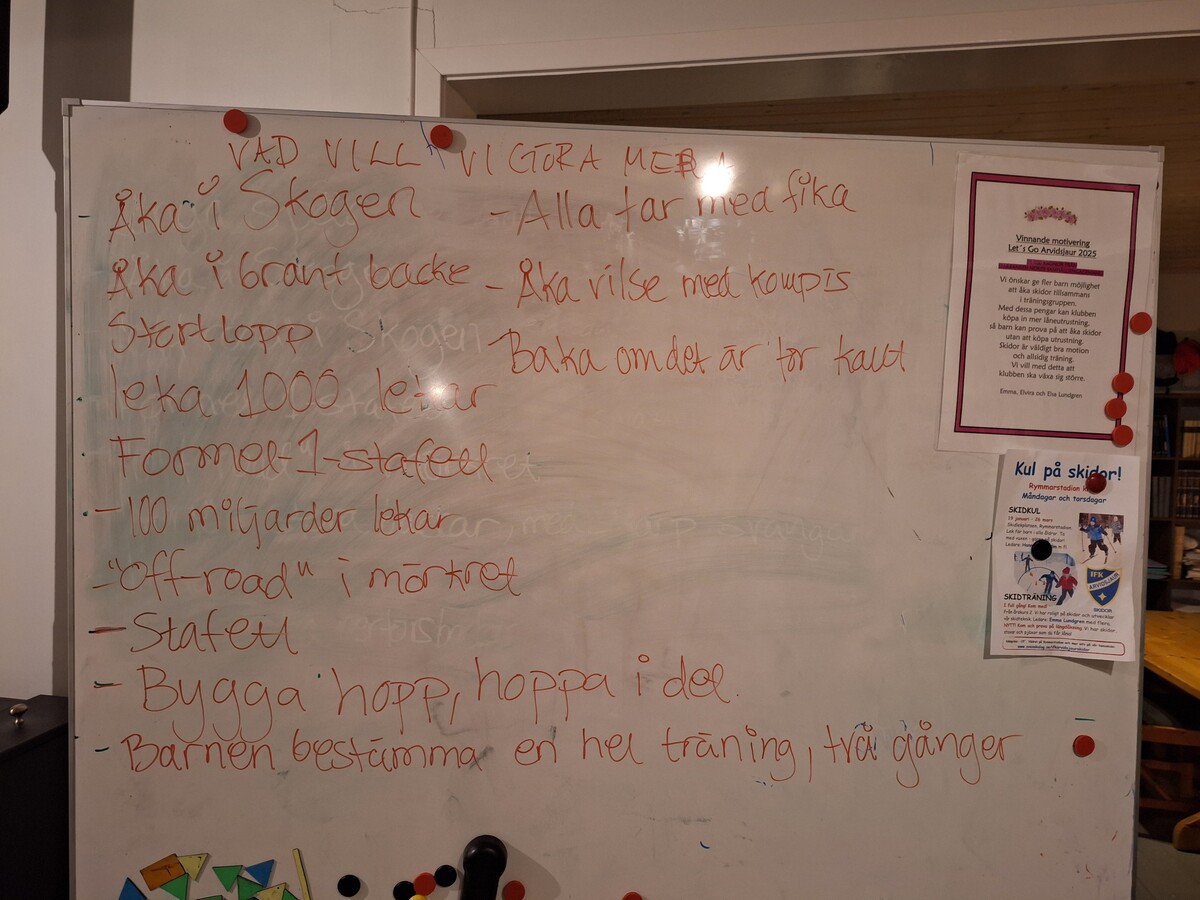 VAD VILL VI GÖRA MER
- Åka i Skogen
Åka i brant backe
Stortlopp
leka 1000 lekar
Formel-1-stafett
- 100 miljarder lekar
- "off-road" i mörkret
- Stafett
- Bygga hopp, hoppa i det.
- Barnen bestämma en hel träning, två gånger
- Alla tar med fika
- Åka vilse med kompis
Baka om det är för kallt
Vinnande motivering
Let´s Go Arvidsjaur 2025
Vi önskar ge fler barn möjlighet
att åka skidor tillsammans
i träningsgruppen.
Med dessa pengar kan klubben
köpa in mer låneutrustning,
så barn kan prova på att åka skidor
utan att köpa utrustning.
Skidor är väldigt bra motion
och allsidig träning.
Vi vill med detta att
klubben ska växa sig större.
Emma, Elvira och Elsa Lundgren
Kul på skidor!
Rymmarstadion
Måndagar och torsdagar
SKIDKUL
19 januari - 26 mars
IFK
ARVIDSJAUR
SKIDOR
SKIDTRÄNING